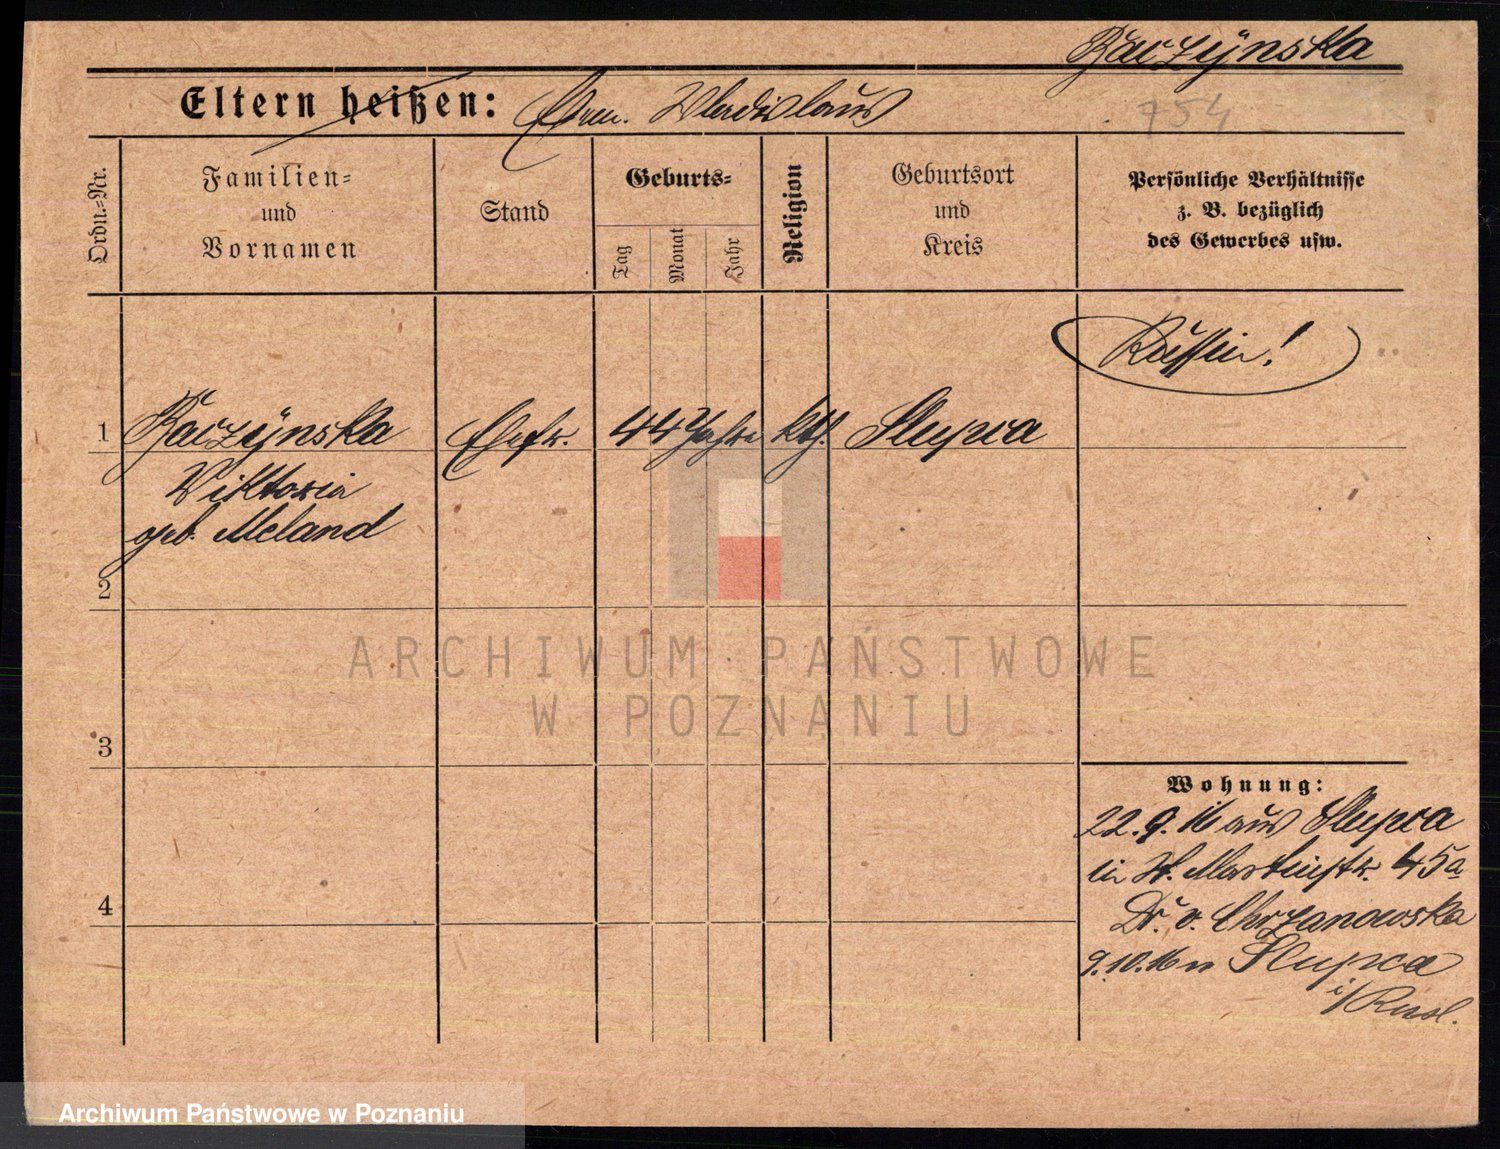 Raczÿnska
Eltern heißen: Ehem. Wladislaus
754
Ordn.=Nr.
Familien=
und
Vornamen
Stand
Geburts=
Tag
Monat
Jahr
Religion
Geburtsort
und
Kreis
Persönliche Verhältnisse
z. B. bezüglich
des Gewerbes usw.
Russin!
1 Raczÿnska Ehefr. 44 Jahre kth. Slupca
Viktoria
geb. Meland
2
3
4
Wohnung:
22.9.16 aus Slupca
in St. Martinstr. 45a
Dr. v. Chrzanowska
9.10.16 n Slupca
i/Russl.
ARCHIWUM PAŃSTWOWE
W POZNANIU
Archiwum Państwowe w Poznaniu